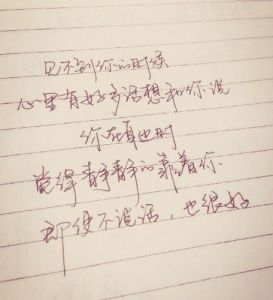 见不到你的时候
心里有好多话想和你说
你在身边时
觉得静静的靠着你
即使不说话，也很好